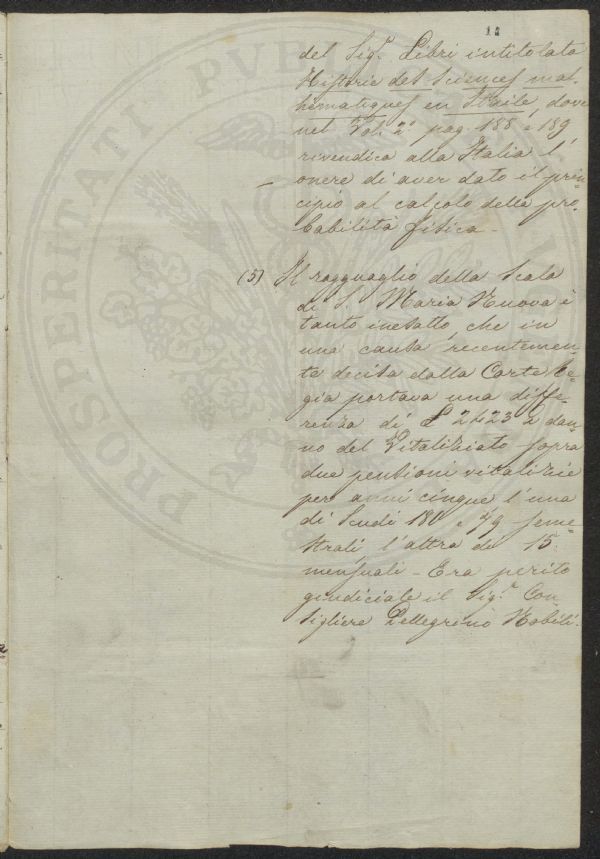 14
del Sig.r Libri intitolata
Histoire des Sciences mat-
hematiques en Italie, dove
nel Vol. 2.° pag. 188 e 189
rivendica alla Italia l'
onore di aver dato il prin-
cipio al calcolo della pro-
babilità fisica -
(5) Il ragguaglio della Scala
di S. Maria Nuova è
tanto inesatto, che in
una causa recentemen-
te decisa dalla Corte Re-
gia portava una diffe-
renza di £ 2423 a dan-
no del Vitaliziato sopra
due pensioni vitalizie
per anni cinque l'una
di Scudi 180 e seme-
strali l'altra di 15.
mensuali - Era perito
giudiciale il Sig.r Con-
sigliere Pellegrino Nobili.
PROSPERITATI PVBLIC